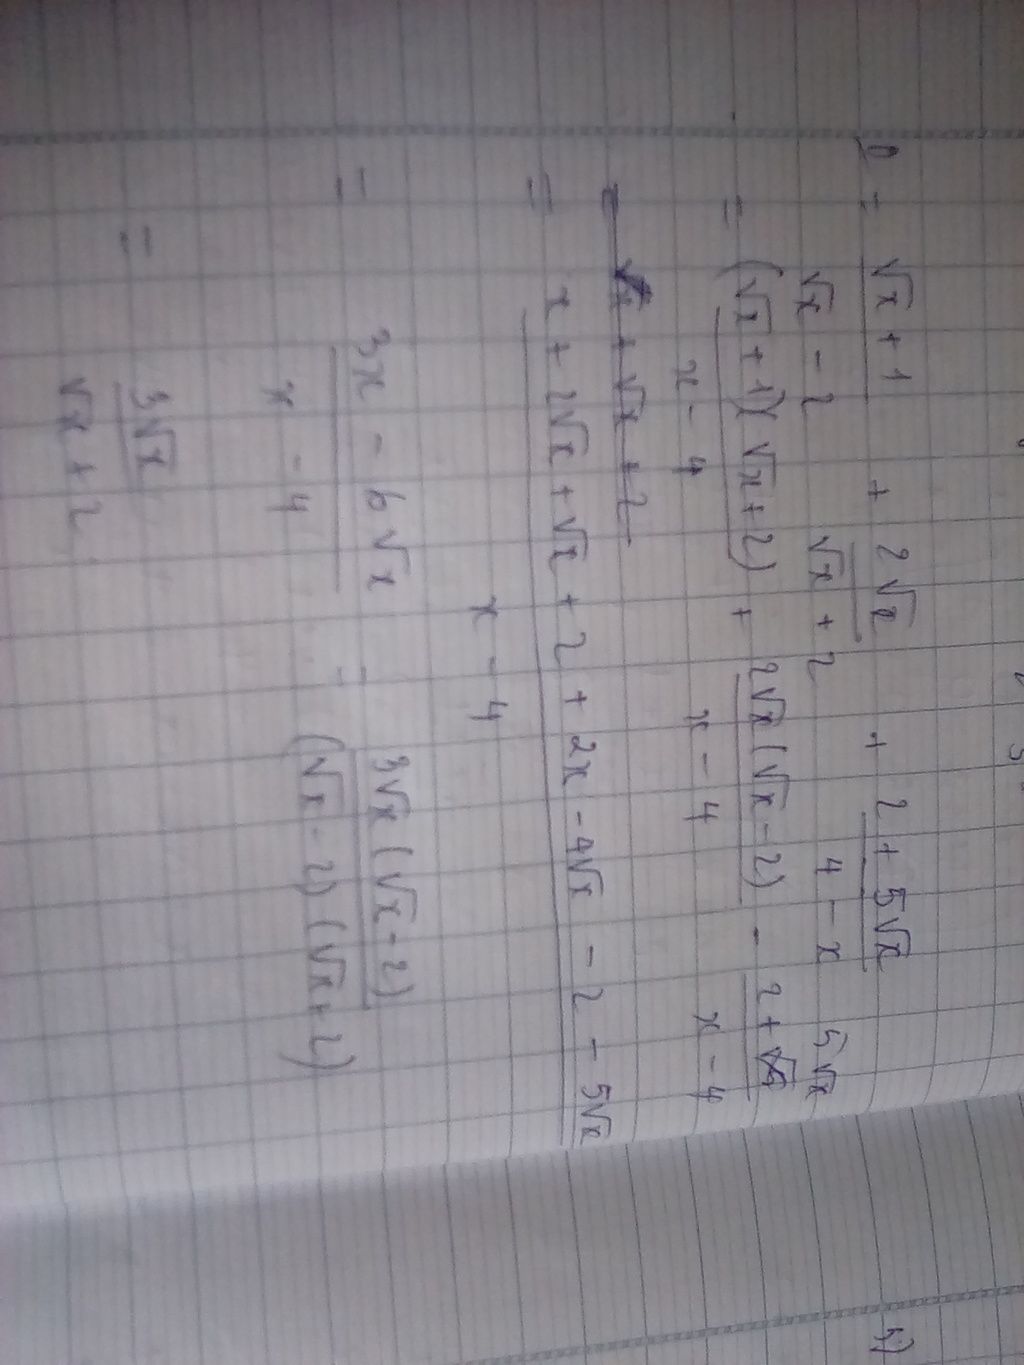 P = (√x + 1)/(√x - 2) + 2√x/(√x + 2) + (2 + 5√x)/(4 - x)
5√x
= (√x + 1)(√x + 2)/(x - 4) + 2√x(√x - 2)/(x - 4) - (2 +)/(x - 4)
= x + √x + 2
= (x + 2√x + √x + 2 + 2x - 4√x - 2 - 5√x)/(x - 4)
= (3x - 6√x)/(x - 4) = 3√x(√x - 2)/((√x - 2)(√x + 2))
= 3√x/(√x + 2)
5)